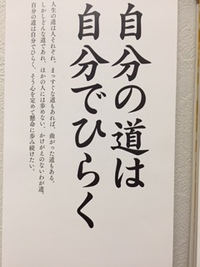 自分の道は
自分でひらく
人生の道は人それぞれ。まっすぐな道もあれば、曲がった道もある。
しかしどんな道であれ、ほかの人には歩めない、かけがえのないわが道。
自分の道は自分でひらく、そう心を定めて懸命に歩み続けたい。